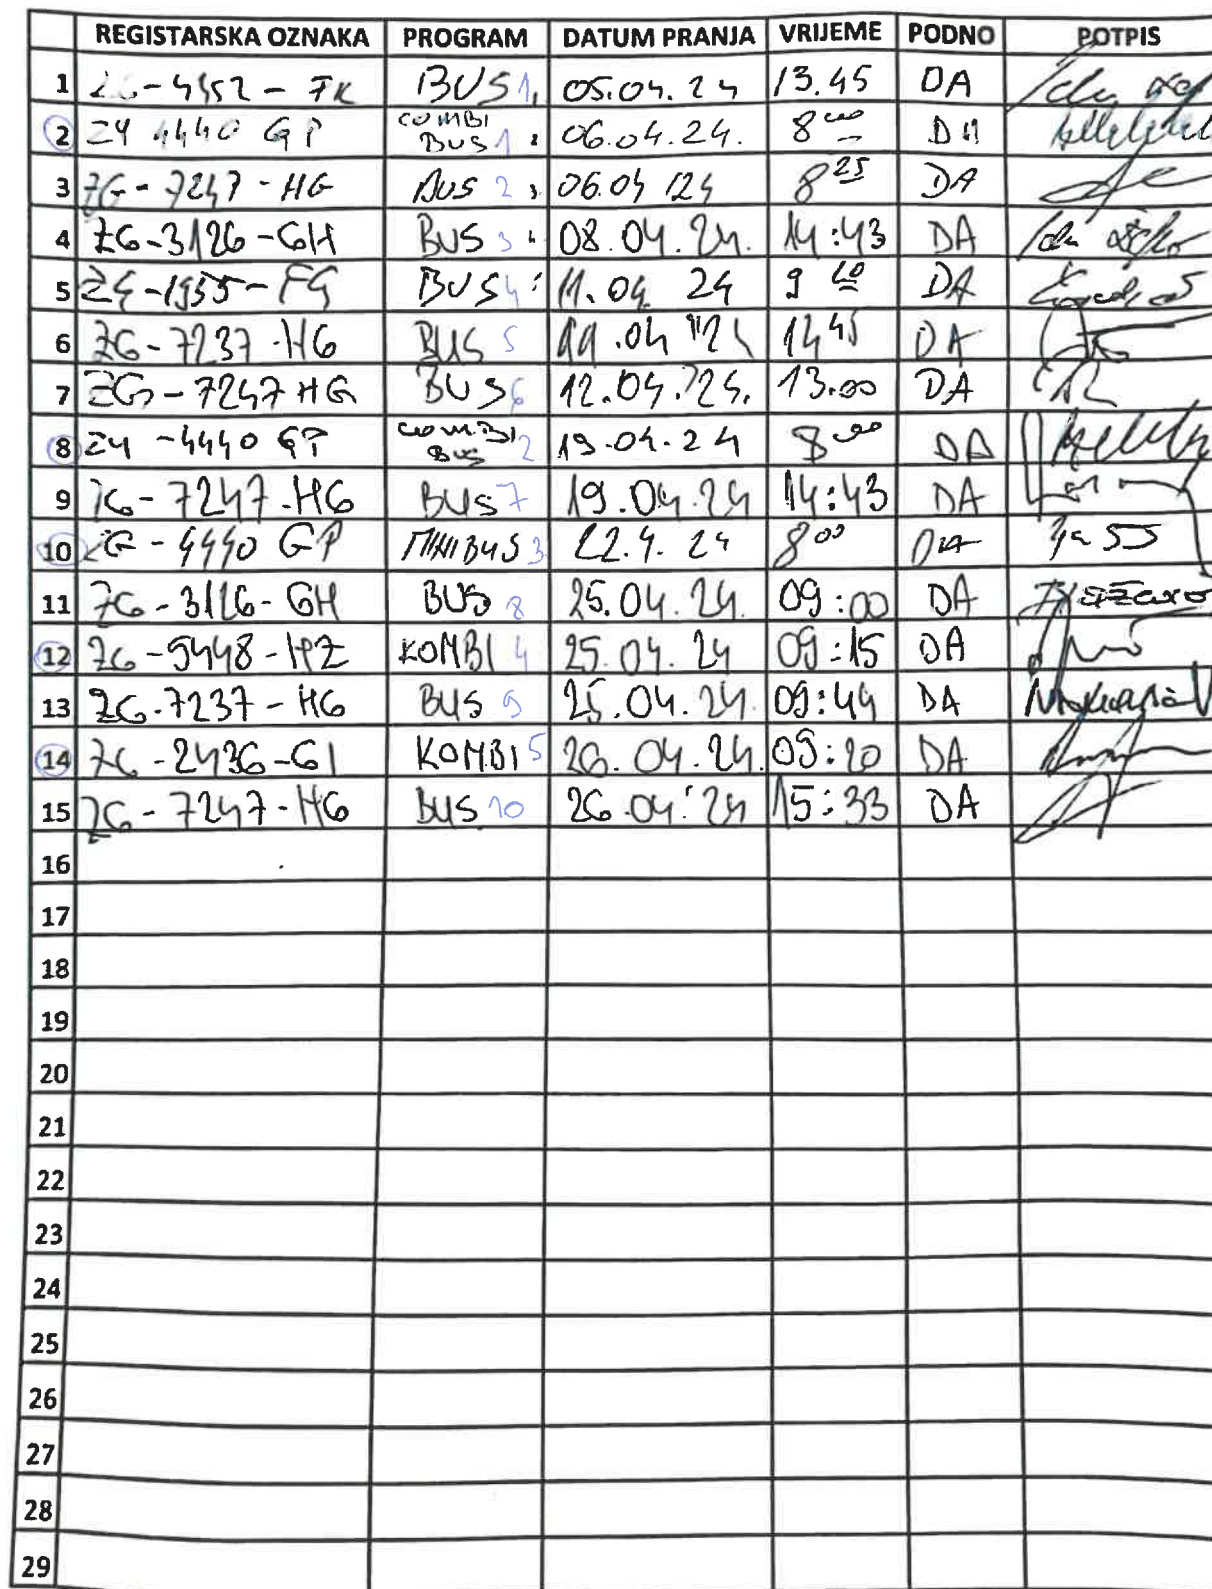 REGISTARSKA OZNAKA PROGRAM DATUM PRANJA VRIJEME PODNO POTPIS
1 ZG-4352-FK BUS 1 05.04.24 13.45 DA
2 4440 GP COMBI BUS 1 06.04.24. 8 00 DA
3 ZG-7247-HG BUS 2 06.04 /24 8 25 DA
4 ZG-3126-GH BUS 3 08.04.24. 14:43 DA
5 ZG-1955-FG BUS 4 11.04 24 9 DA
6 ZG-7237-HG BUS 5 11.04 24 14 45 DA
7 ZG-7247 HG BUS 6 12.04.24. 13.00 DA
8 -4440 GP COMBI BUS 2 19.04.24 8 00 DA
9 ZG-7247-HG BUS 7 19.04.24 14:43 DA
10 ZG-4440 GP MINIBUS 3 22.4.24 8 00 DA
11 ZG-3126-GH BUS 8 25.04.24. 09:00 DA
12 ZG-9448-HZ KOMBI 4 25.04.24 09:15 DA
13 ZG-7237-HG BUS 9 25.04.24. 09:44 DA
14 ZG-2436-GI KOMBI 5 26.04.24. 09:20 DA
15 ZG-7247-HG BUS 10 26.04.24 15:33 DA
16
17
18
19
20
21
22
23
24
25
26
27
28
29